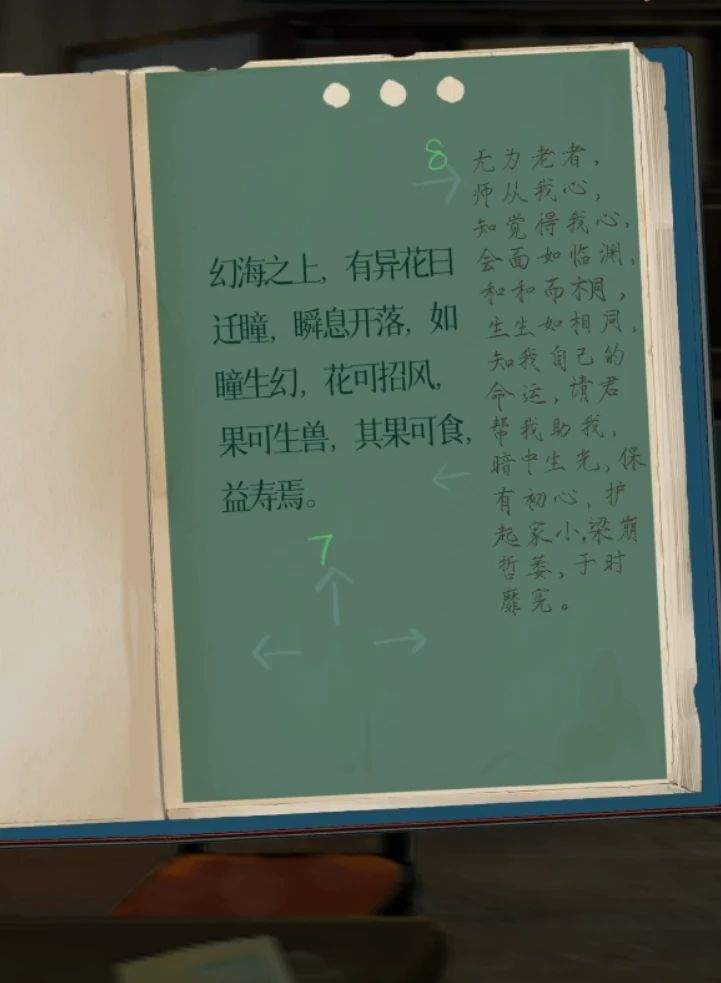 幻海之上，有异花曰
迁瞳，瞬息开落，如
瞳生幻，花可招风，
果可生兽，其果可食，
益寿焉。
7
8
无为老者，
师从我心，
知觉得我心，
会面如临渊，
和和而相，
生生如相同，
知我自己的
命运，请君
帮我助我，
暗中生光，保
有初心，护
起家小，梁崩
哲萎，于时
靡宪。